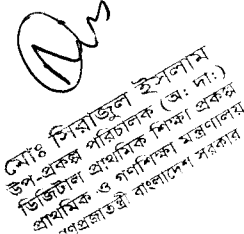 মোঃ সিরাজুল ইসলাম
উপ-প্রকল্প পরিচালক (অঃ দাঃ)
ডিজিটাল প্রাথমিক শিক্ষা প্রকল্প
প্রাথমিক ও গণশিক্ষা মন্ত্রণালয়
গণপ্রজাতন্ত্রী বাংলাদেশ সরকার